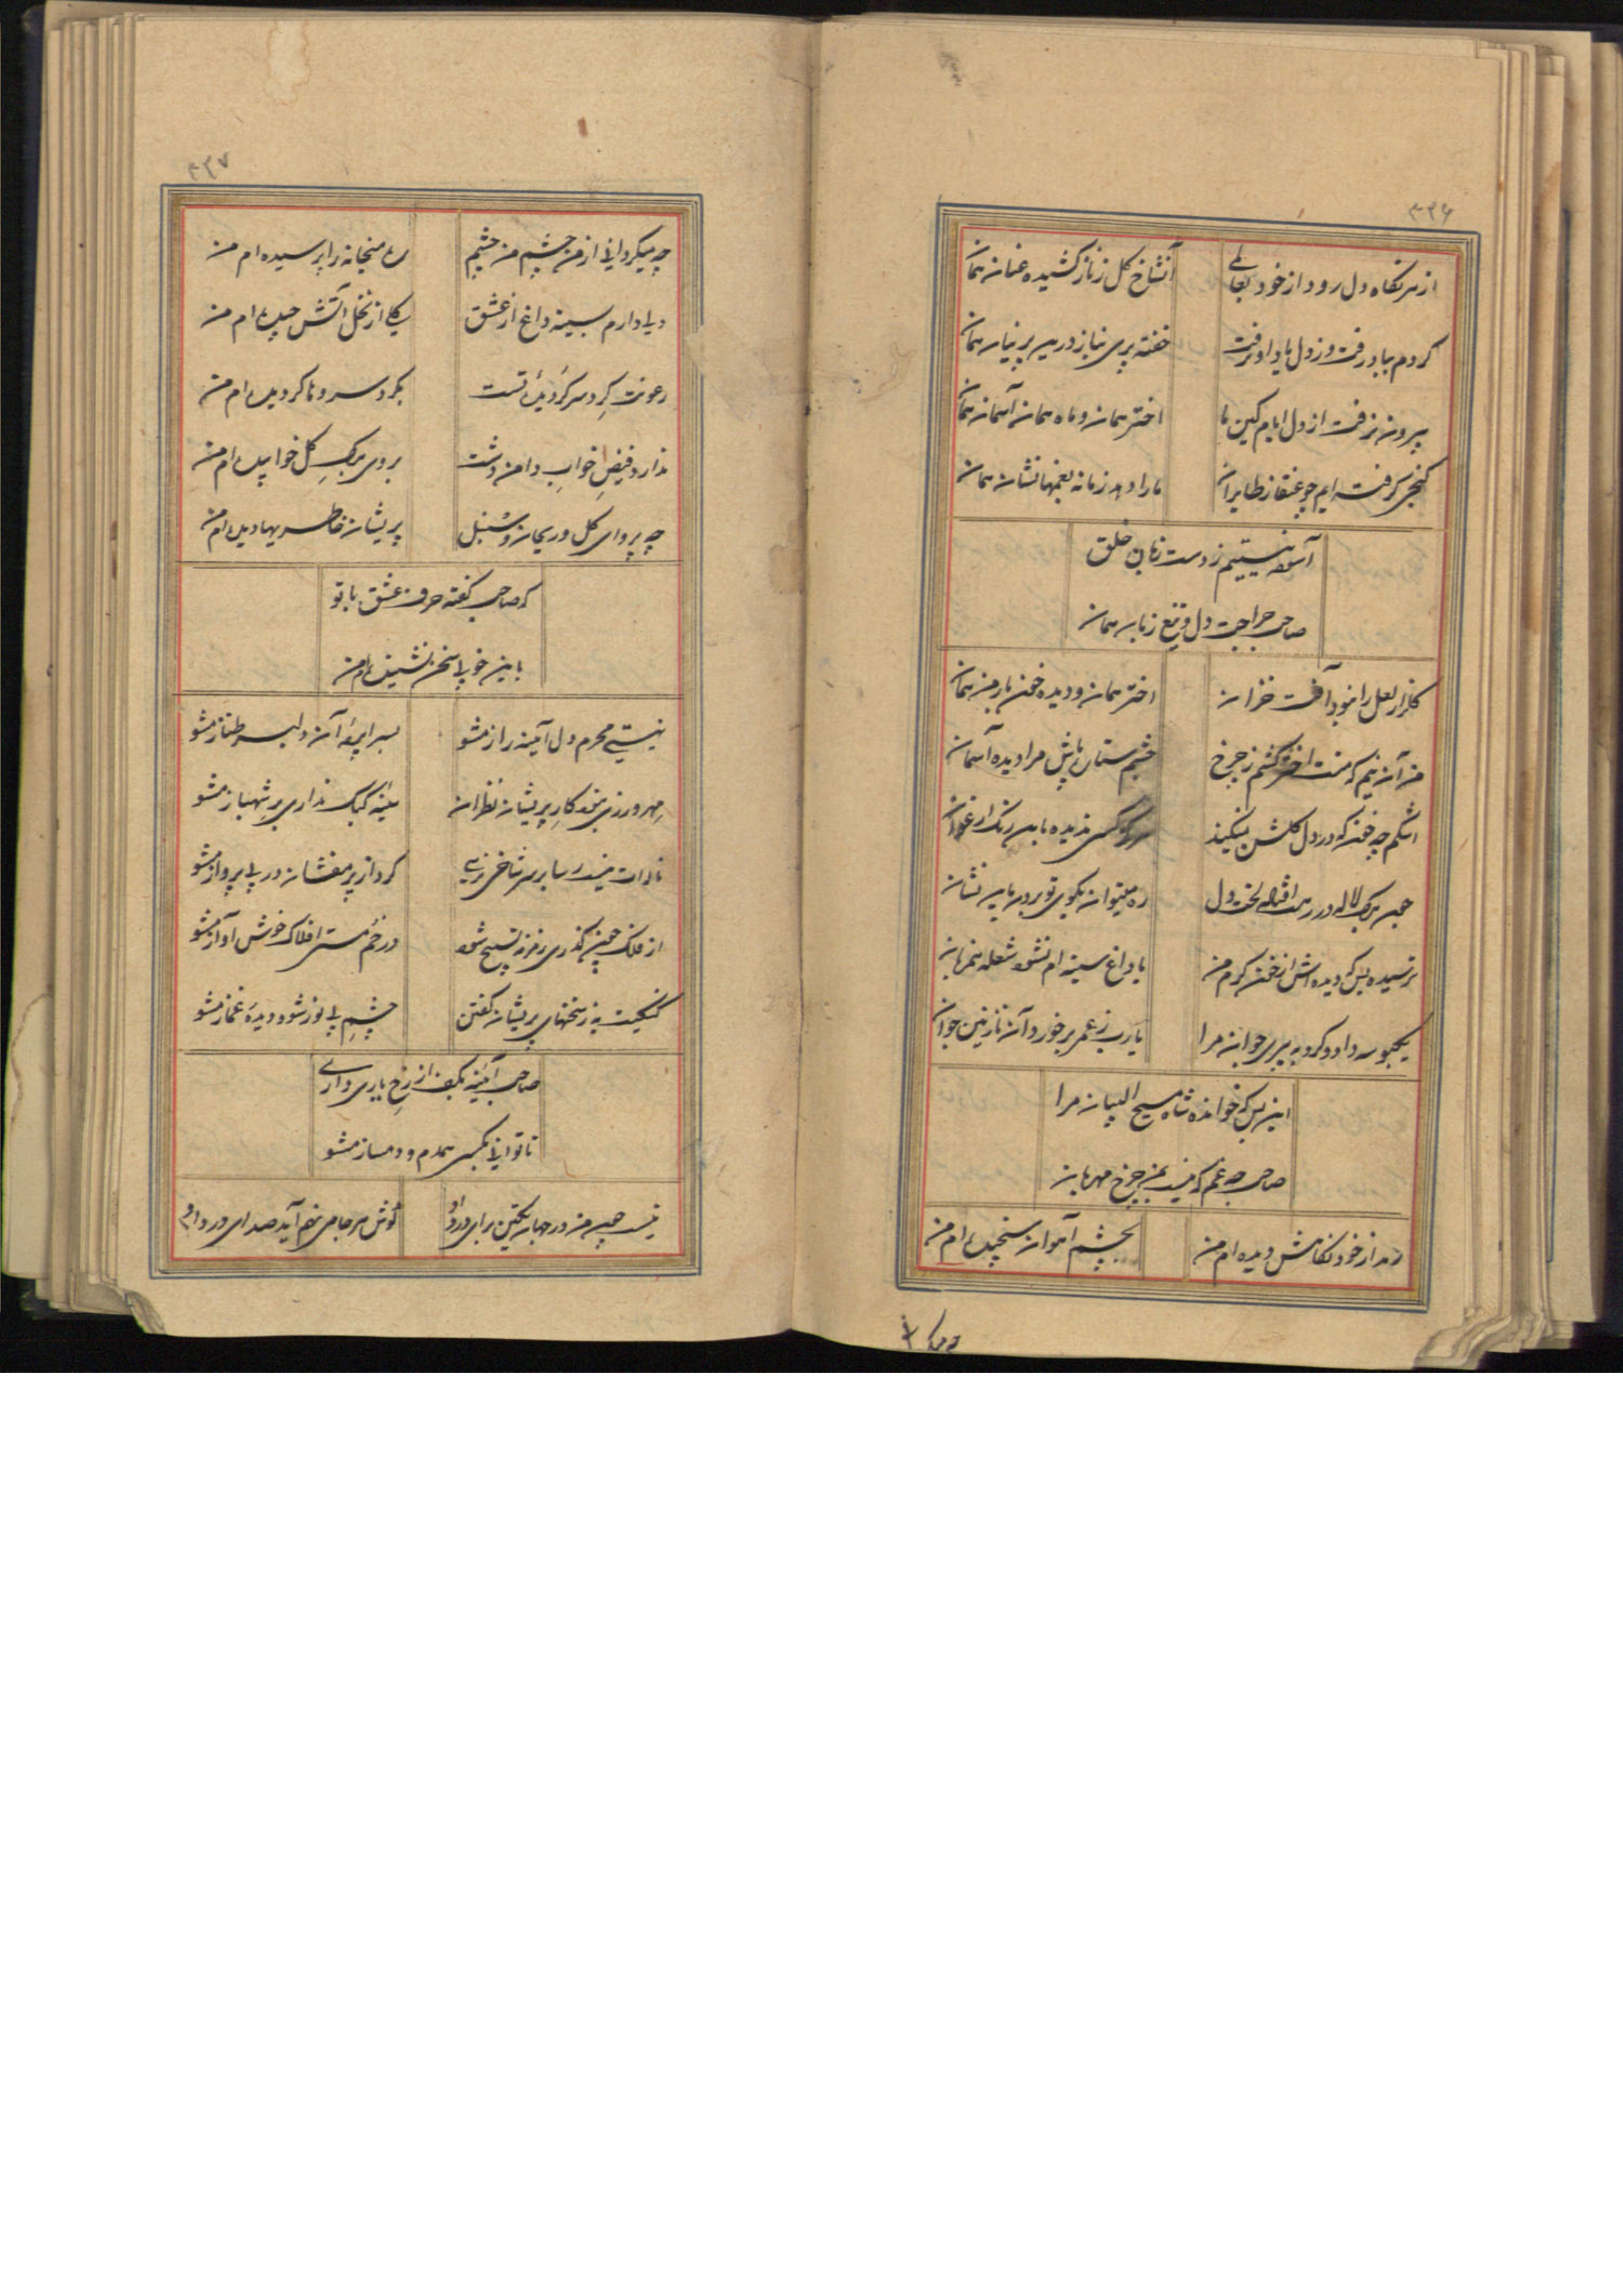 ۳۳۶
از هر نگاه دل رود از خود بغافلی آنشاخ گل ز ناز کشیده عنان همان
کردم بباد رفت و ز دل یاد او نرفت خفته پری بناز در پرنیان همان
بیرون نرفت از دل ایام کین ما اختر همان و ماه همان آسمان همان
کنجی گرفته ایم چو عنقا ز طایران ما را دهد زمانه بغمها نشان همان
آسوده نیستیم ز دست زبان خلق
صاحب جراحت دل و تیغ زبان همان
گلزار لعل را نبود آفت خزان اختر همان و دیده خون بار من همان
من آن نیم که منت اختر کشم ز چرخ چشم ستاره پاش مرا دیده آسمان
اشکم چه خون که در دل گلشن نیفکند هرگز کسی ندیده باین رنگ ارغوان
چون برگ لاله در رهت افتاده لخت دل ره میتوان بکوی تو بردن باین نشان
ترسیده بس که دیده اش از خون گرم من با داغ سینه ام نشود شعله همزبان
یکبوسه داد و کرد به پیری جوان مرا یارب ز عمر برخورد آن نازنین جوان
این بس که خوانده شاه مسیح البیان مرا
صاحب چه غم که نیست بمن چرخ مهربان
رمد از خود نگاهش دیده ام من بچشم آهوان سنجیده ام من
۳۳۷
چه میگردانی از من چشم من چشم ره میخانه را پرسیده ام من
دلی دارم بسینه داغ از عشق گلی از نخل آتش چیده ام من
رعونت گرد سر گردیده تست بگرد سرو ها گردیده ام من
ندارد فیض خواب دامن دشت بروی برگ گل خوابیده ام من
چه پروای گل و ریحان و سنبل پریشان خاطریها دیده ام من
که صاحب گفته حرف عشق با تو
باین خوبی سخن نشنیده ام من
نیستی محرم دل آینه راز مشو بسراپرده آن دلبر طناز مشو
مهر ورزی نبود کار پریشان نظران سینه کبک نداری بر شهباز مشو
ناله ات نیست رسا بر سر شاخی نرسی گرد از پر مفشان در پی پرواز مشو
از ملک چون گذری زمزمه تسبیح شود در خم مستی افلاک خوش آواز مشو
گنگیت به ز سخنهای پریشان گفتن چشم بی نور شو و دیده غماز مشو
صاحب آئینه بکف از رخ یاری داری
تا توانی بکسی همدم و دمساز مشو
نیست چون من در جهان یکتن برای درد او گوش هر جا می نهم آید صدای درد او